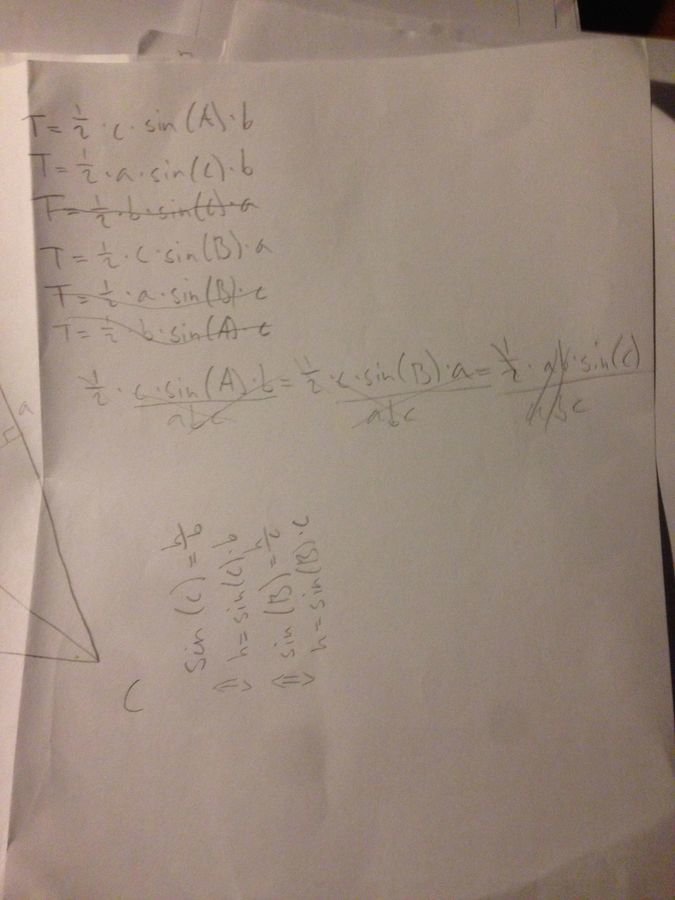 T = 1/2 · c · sin(A) · b
T = 1/2 · a · sin(C) · b
T = 1/2 · b · sin(C) · a
T = 1/2 · c · sin(B) · a
T = 1/2 · a · sin(B) · c
T = 1/2 · b · sin(A) · c
1/2 · c · sin(A) · b / abc = 1/2 · c · sin(B) · a / abc = 1/2 · ab · sin(C) / abc
a
sin(C) = h/b
⇔ h = sin(C) · b
sin(B) = h/c
⇔ h = sin(B) · c
C